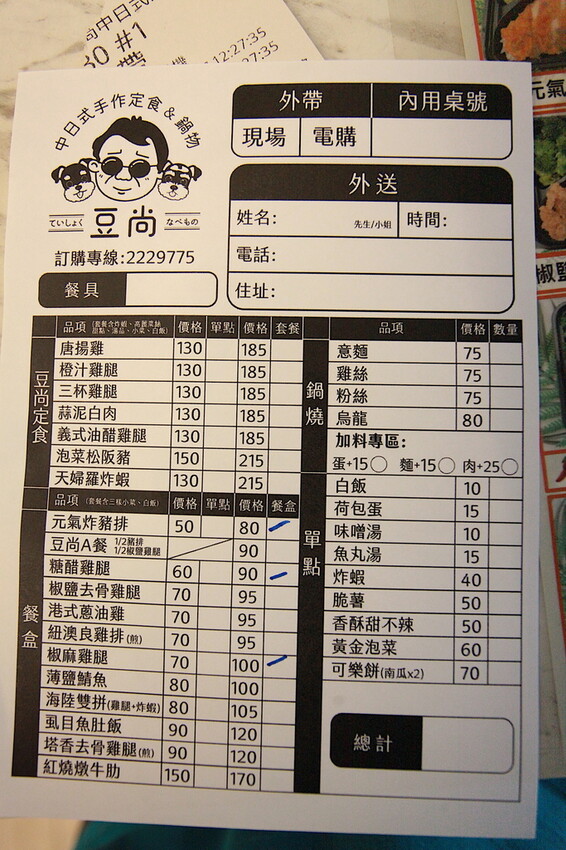 12:27:35
中日式手作定食&鍋物
ていしょく 豆尚 なべもの
訂購專線:2229775
餐具
外帶 內用桌號
現場 電購
外送
姓名: 先生/小姐 時間:
電話:
住址:
豆尚定食
品項 (套餐含炸蝦、高麗菜絲 甜點、湯品、小菜、白飯) 價格 單點 價格 套餐
唐揚雞 130 185
橙汁雞腿 130 185
三杯雞腿 130 185
蒜泥白肉 130 185
義式油醋雞腿 130 185
泡菜松阪豬 150 215
天婦羅炸蝦 130 215
餐盒
品項 (套餐含三樣小菜、白飯) 價格 單點 價格 餐盒
元氣炸豬排 50 80
豆尚A餐 1/2豬排 1/2椒鹽雞腿 90
糖醋雞腿 60 90
椒鹽去骨雞腿 70 95
港式蔥油雞 70 95
紐澳良雞排(煎) 70 95
椒麻雞腿 70 100
薄鹽鯖魚 80 100
海陸雙拼(雞腿+炸蝦) 80 105
虱目魚肚飯 90 120
塔香去骨雞腿(煎) 90 120
紅燒燉牛肋 150 170
鍋燒
品項 價格 數量
意麵 75
雞絲 75
粉絲 75
烏龍 80
加料專區:
蛋+15○ 麵+15○ 肉+25○
單點
白飯 10
荷包蛋 15
味噌湯 10
魚丸湯 15
炸蝦 40
脆薯 50
香酥甜不辣 50
黃金泡菜 60
可樂餅(南瓜x2) 70
總計
元氣
椒鹽